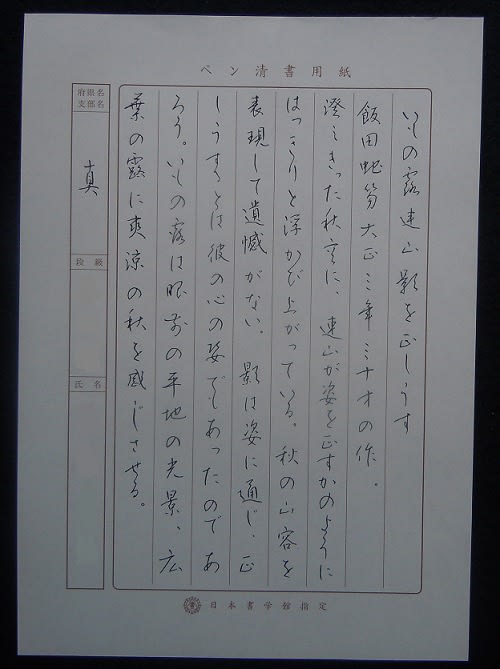 ペン清書用紙
いもの露連山影を正しうす
飯田蛇笏大正三年三十才の作。
澄みきった秋空に、連山が姿を正すかのように
はっきりと浮かび上がっている。秋の山容を
表現して遺憾がない。影は姿に通じ、正
しうすとは彼の心の姿でもあったのであ
ろう。いもの露は眼前の平地の光景、広
葉の露に爽涼の秋を感じさせる。
府県名
支部名
真
段級
氏名
日本書学館指定